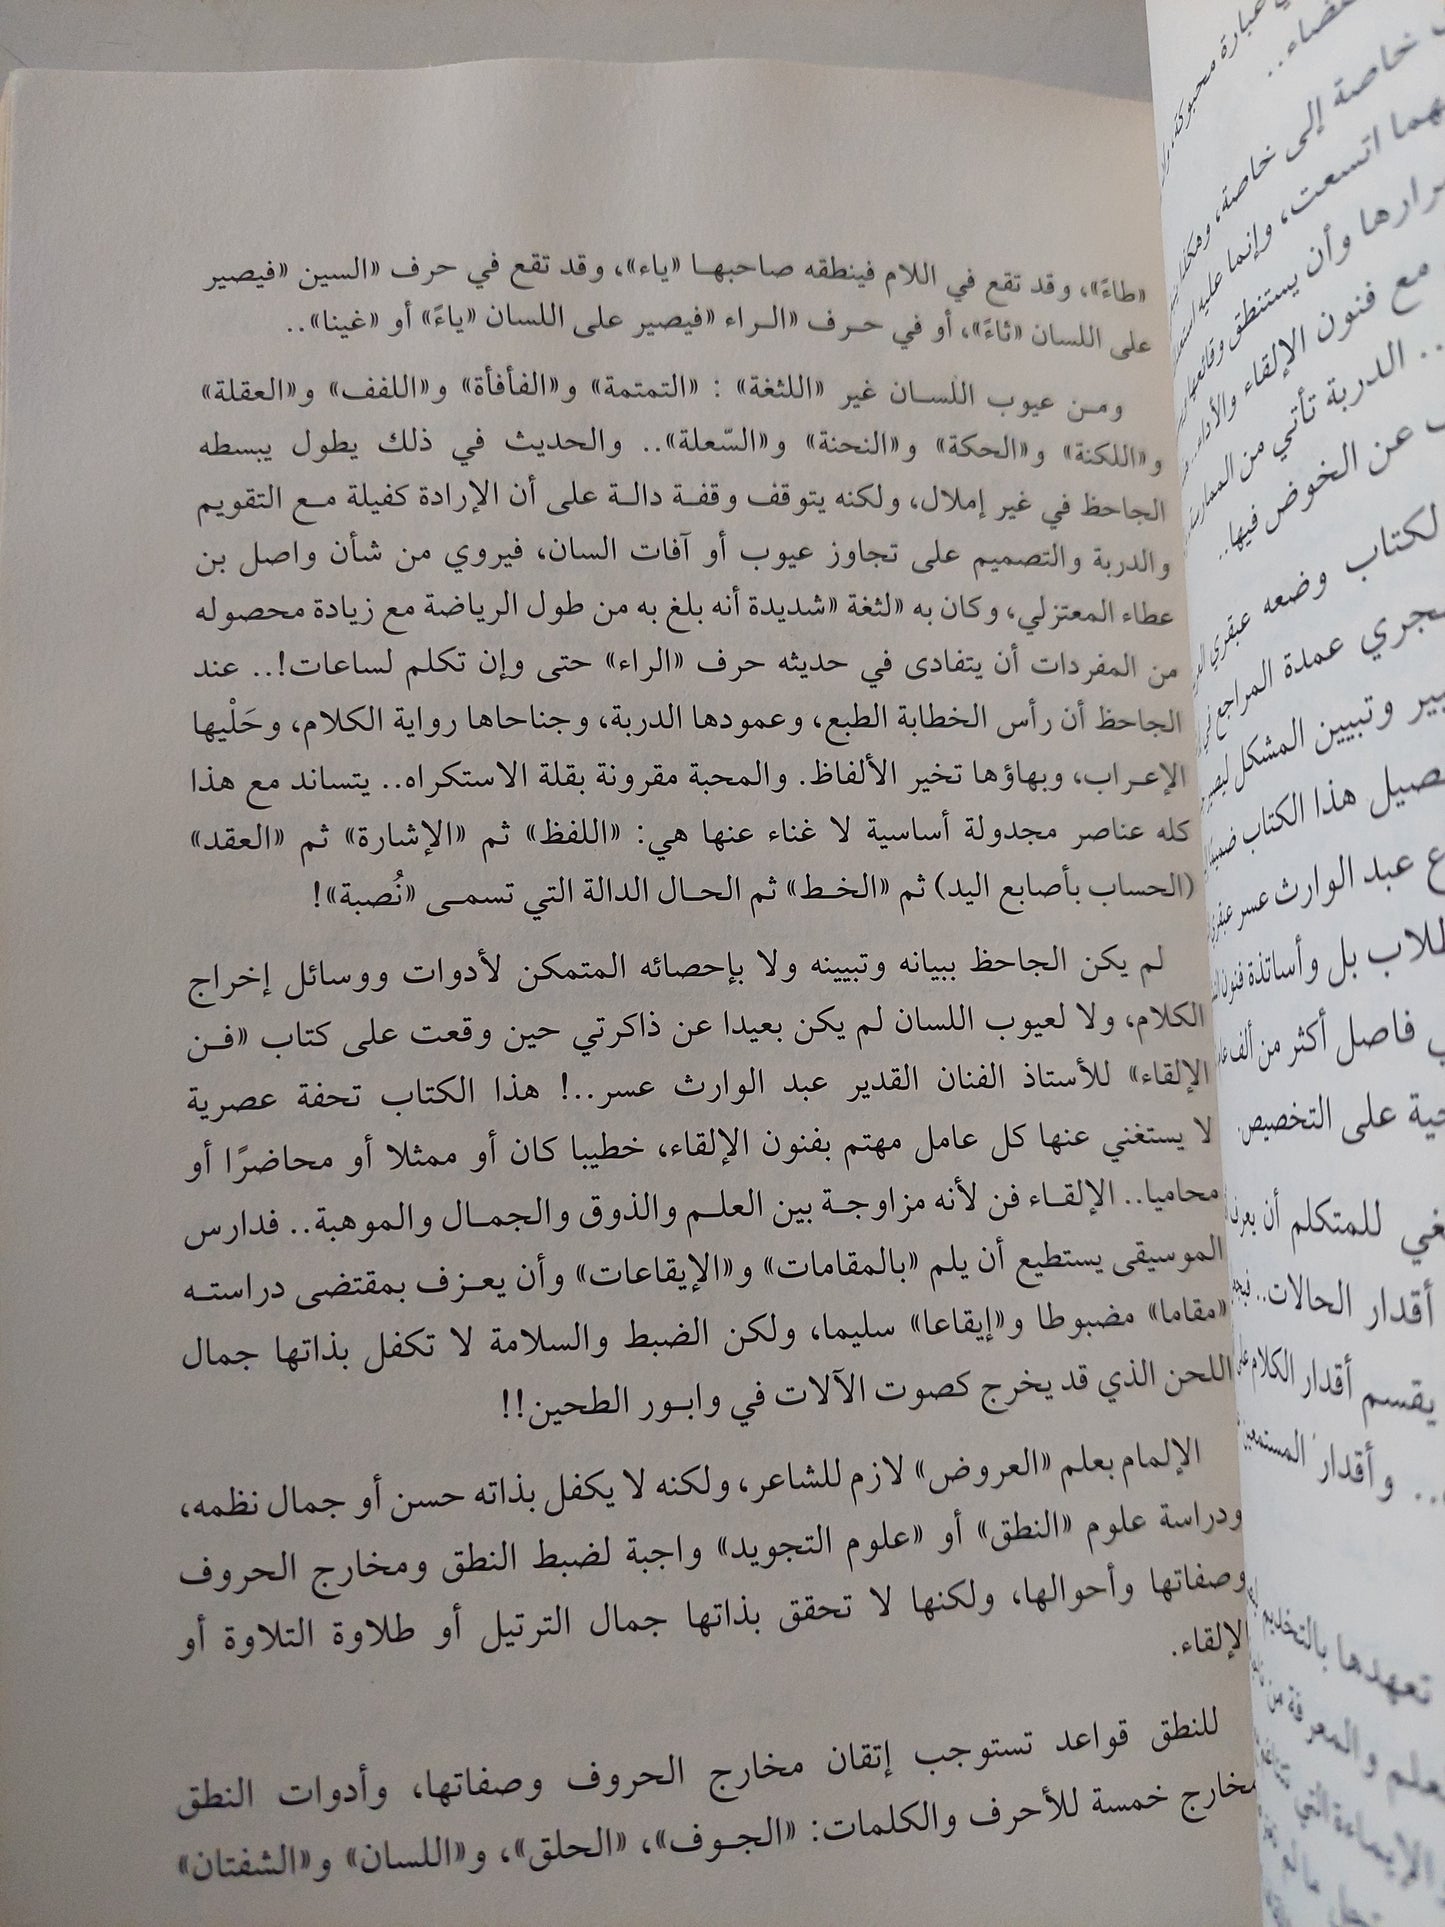 «طاءً»، وقد تقع في اللام فينطقه صاحبها «ياء»، وقد تقع في حرف «السين «فيصير
على اللسان «ثاءً»، أو في حرف «الراء «فيصير على اللسان «ياءً» أو «غينا»..
ومن عيوب اللسان غير «اللثغة» : «التمتمة» و«الفأفأة» و«اللفف» و«العقلة»
و«اللكنة» و«الحكة» و«النحنة» و«السّعلة».. والحديث في ذلك يطول يبسطه
الجاحظ في غير إملال، ولكنه يتوقف وقفة دالة على أن الإرادة كفيلة مع التقويم
والدربة والتصميم على تجاوز عيوب أو آفات السان، فيروي من شأن واصل بن
عطاء المعتزلي، وكان به «لثغة «شديدة أنه بلغ به من طول الرياضة مع زيادة محصوله
من المفردات أن يتفادى في حديثه حرف «الراء» حتى وإن تكلم لساعات!.. عند
الجاحظ أن رأس الخطابة الطبع، وعمودها الدربة، وجناحاها رواية الكلام، وحَلْيها
الإعراب، وبهاؤها تخير الألفاظ. والمحبة مقرونة بقلة الاستكراه.. يتساند مع هذا
كله عناصر مجدولة أساسية لا غناء عنها هي: «اللفظ» ثم «الإشارة» ثم «العقد»
(الحساب بأصابع اليد) ثم «الخط» ثم الحال الدالة التي تسمى «نُصبة»!
لم يكن الجاحظ ببيانه وتبيينه ولا بإحصائه المتمكن لأدوات ووسائل إخراج
الكلام، ولا لعيوب اللسان لم يكن بعيدا عن ذاكرتي حين وقعت على كتاب «فن
الإلقاء» للأستاذ الفنان القدير عبد الوارث عسر..! هذا الكتاب تحفة عصرية
لا يستغني عنها كل عامل مهتم بفنون الإلقاء، خطيبا كان أو ممثلا أو محاضرًا أو
محاميا.. الإلقاء فن لأنه مزاوجة بين العلم والذوق والجمال والموهبة.. فدارس
الموسيقى يستطيع أن يلم «بالمقامات» و«الإيقاعات» وأن يعزف بمقتضى دراسته
«مقاما» مضبوطا و«إيقاعا» سليما، ولكن الضبط والسلامة لا تكفل بذاتها جمال
اللحن الذي قد يخرج كصوت الآلات في وابور الطحين!!
الإلمام بعلم «العروض» لازم للشاعر، ولكنه لا يكفل بذاته حسن أو جمال نظمه،
ودراسة علوم «النطق» أو «علوم التجويد» واجبة لضبط النطق ومخارج الحروف
وصفاتها وأحوالها، ولكنها لا تحقق بذاتها جمال الترتيل أو طلاوة التلاوة أو
الإلقاء.
للنطق قواعد تستوجب إتقان مخارج الحروف وصفاتها، وأدوات النطق
مخارج خمسة للأحرف والكلمات: «الجوف»، «الحلق»، و«اللسان» و«الشفتان»
عبارة محبوكة
خاصة إلى خاصة،
اتسعت، وإنما عليه
وأن يستنطق
مع فنون الإلقاء والأداء..
.. الدربة تأتي من
عن الخوض فيها..
وضعه عبقري
عمدة المراجع
وتبيين المشكل
هذا الكتاب
عبد الوارث عسر
بل وأساتذة فنون
فاصل أكثر من ألف
على التخصيص
للمتكلم أن يعرف
أقدار الحالات..
يقسم أقدار الكلام
.. وأقدار المستمعين